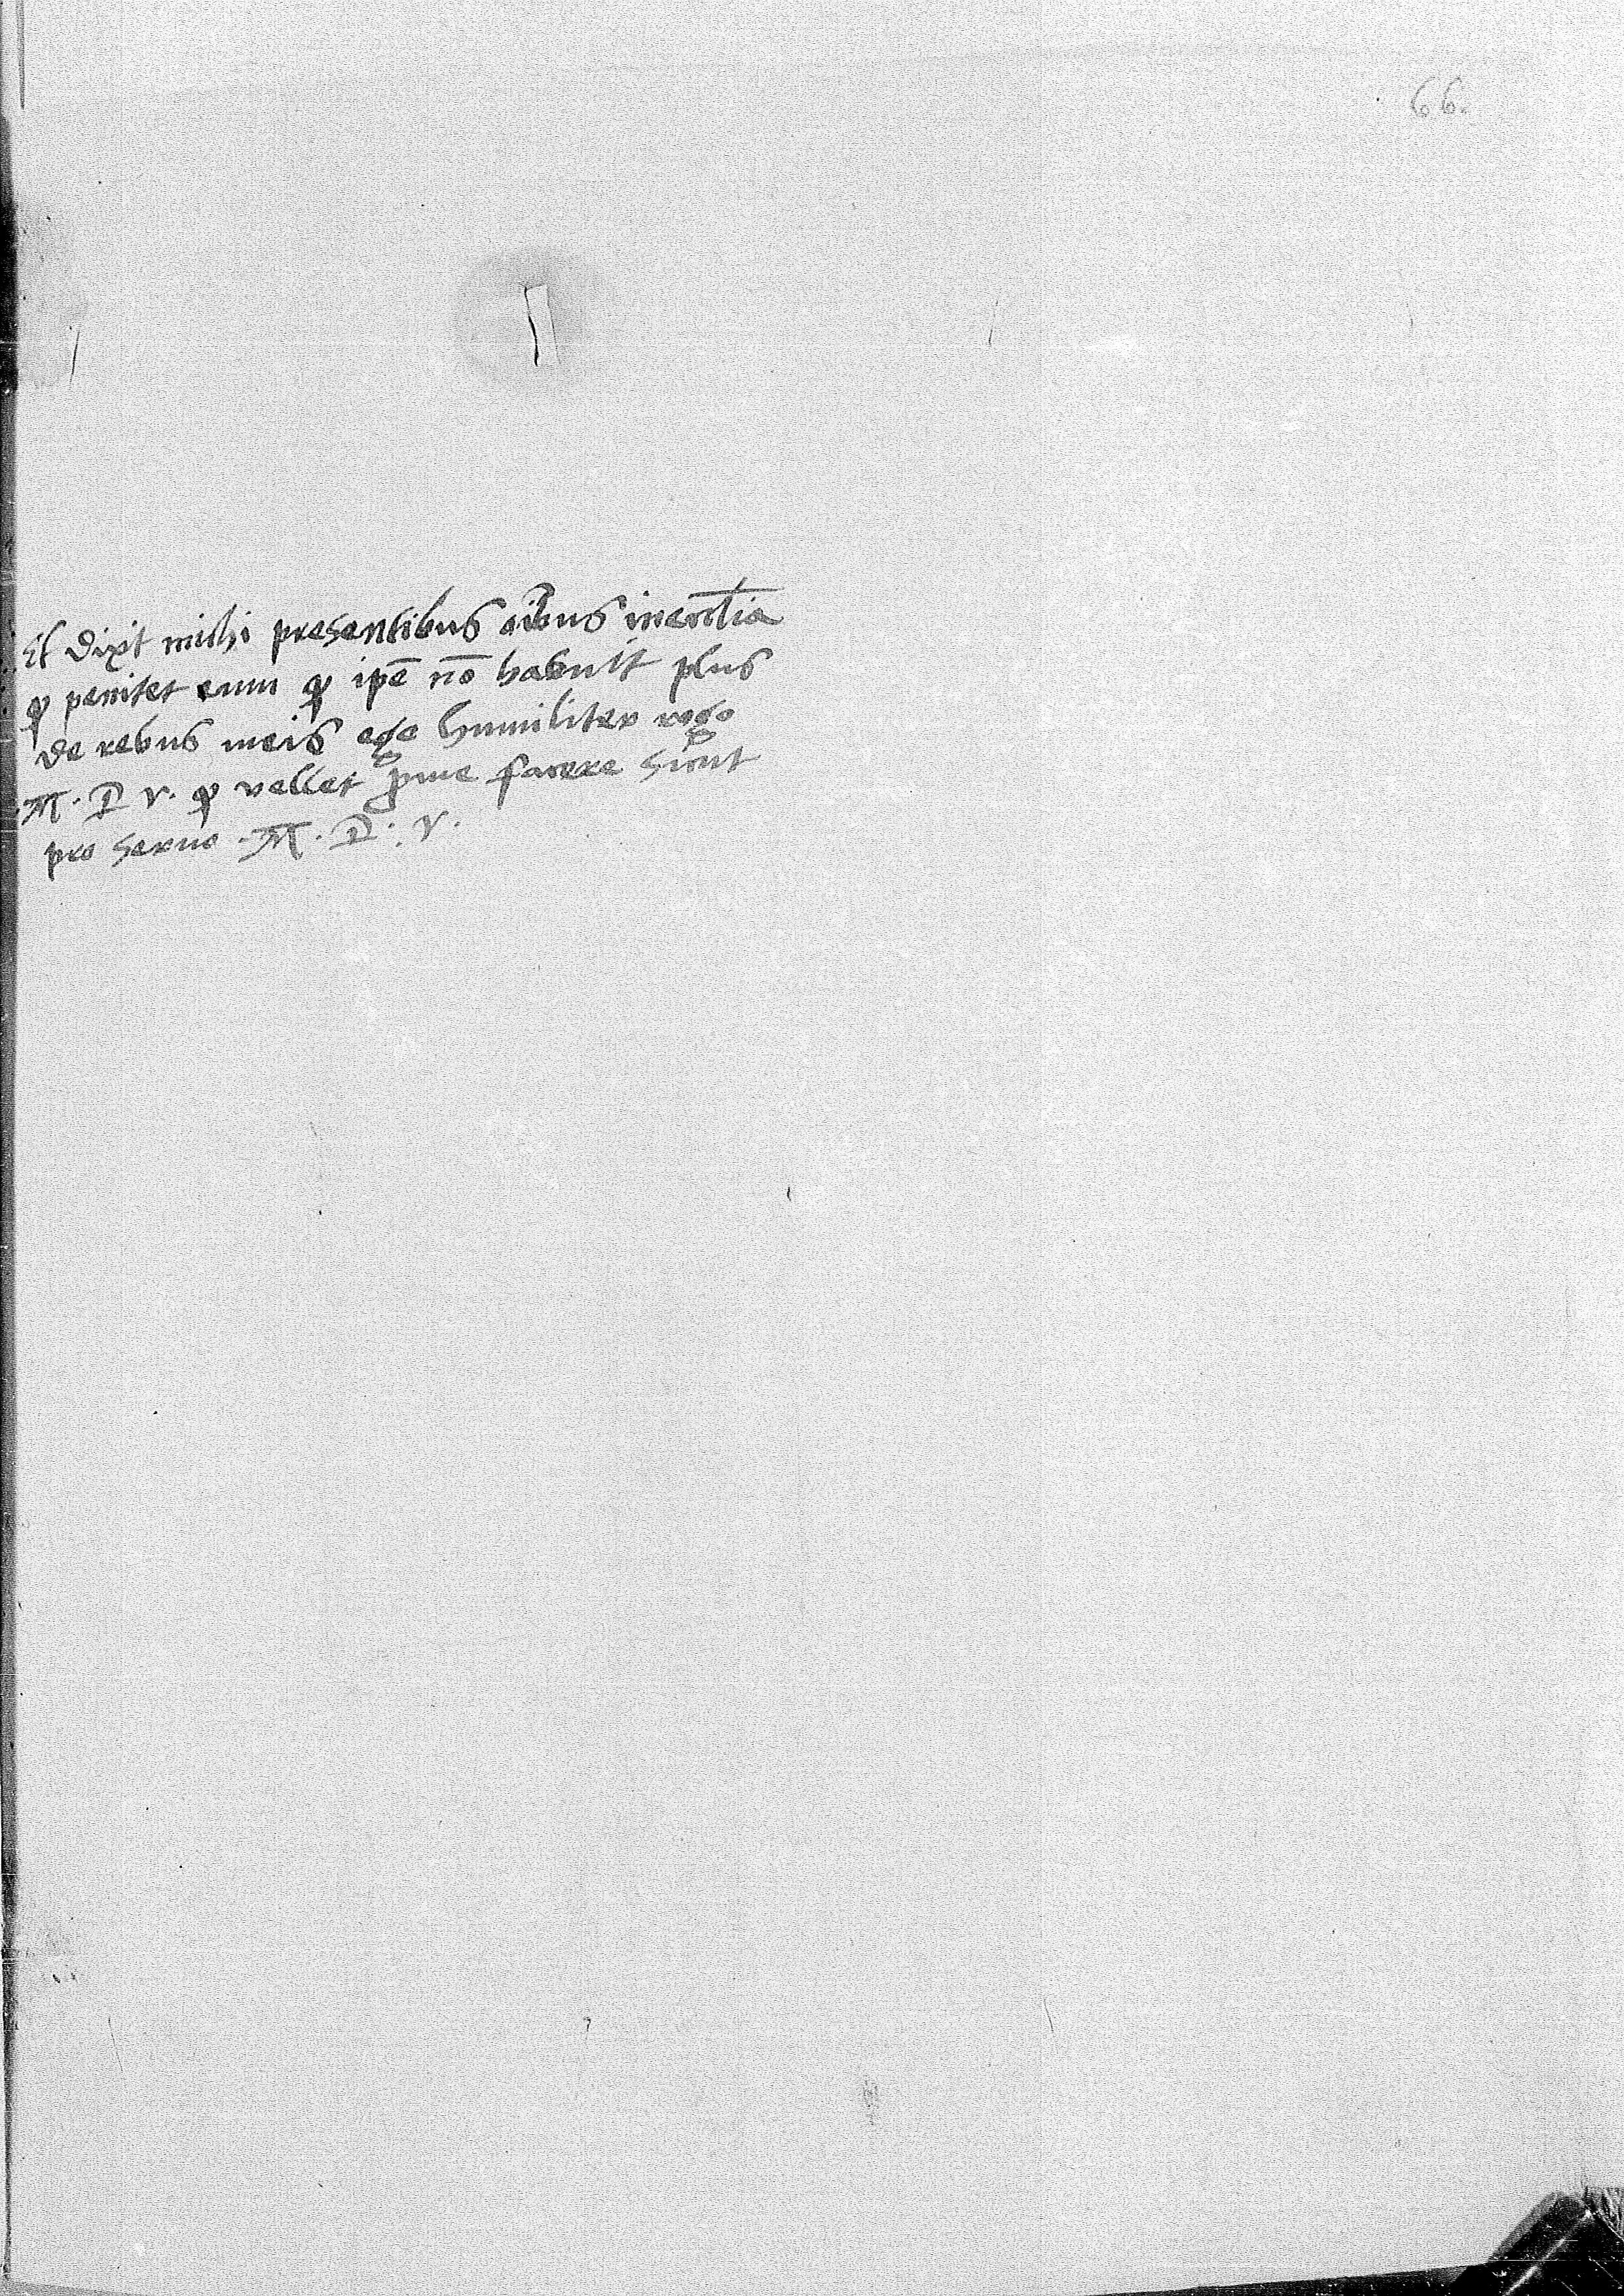 66.
Et dixit michi presentibus oĩbus
ꝙ penitet eum ꝙ ipē nō habuit plus
de rebus meis ego humiliter rogo
M. D. V. ꝙ vellet ꝓ me facere sicut
pro servo M. D. V.